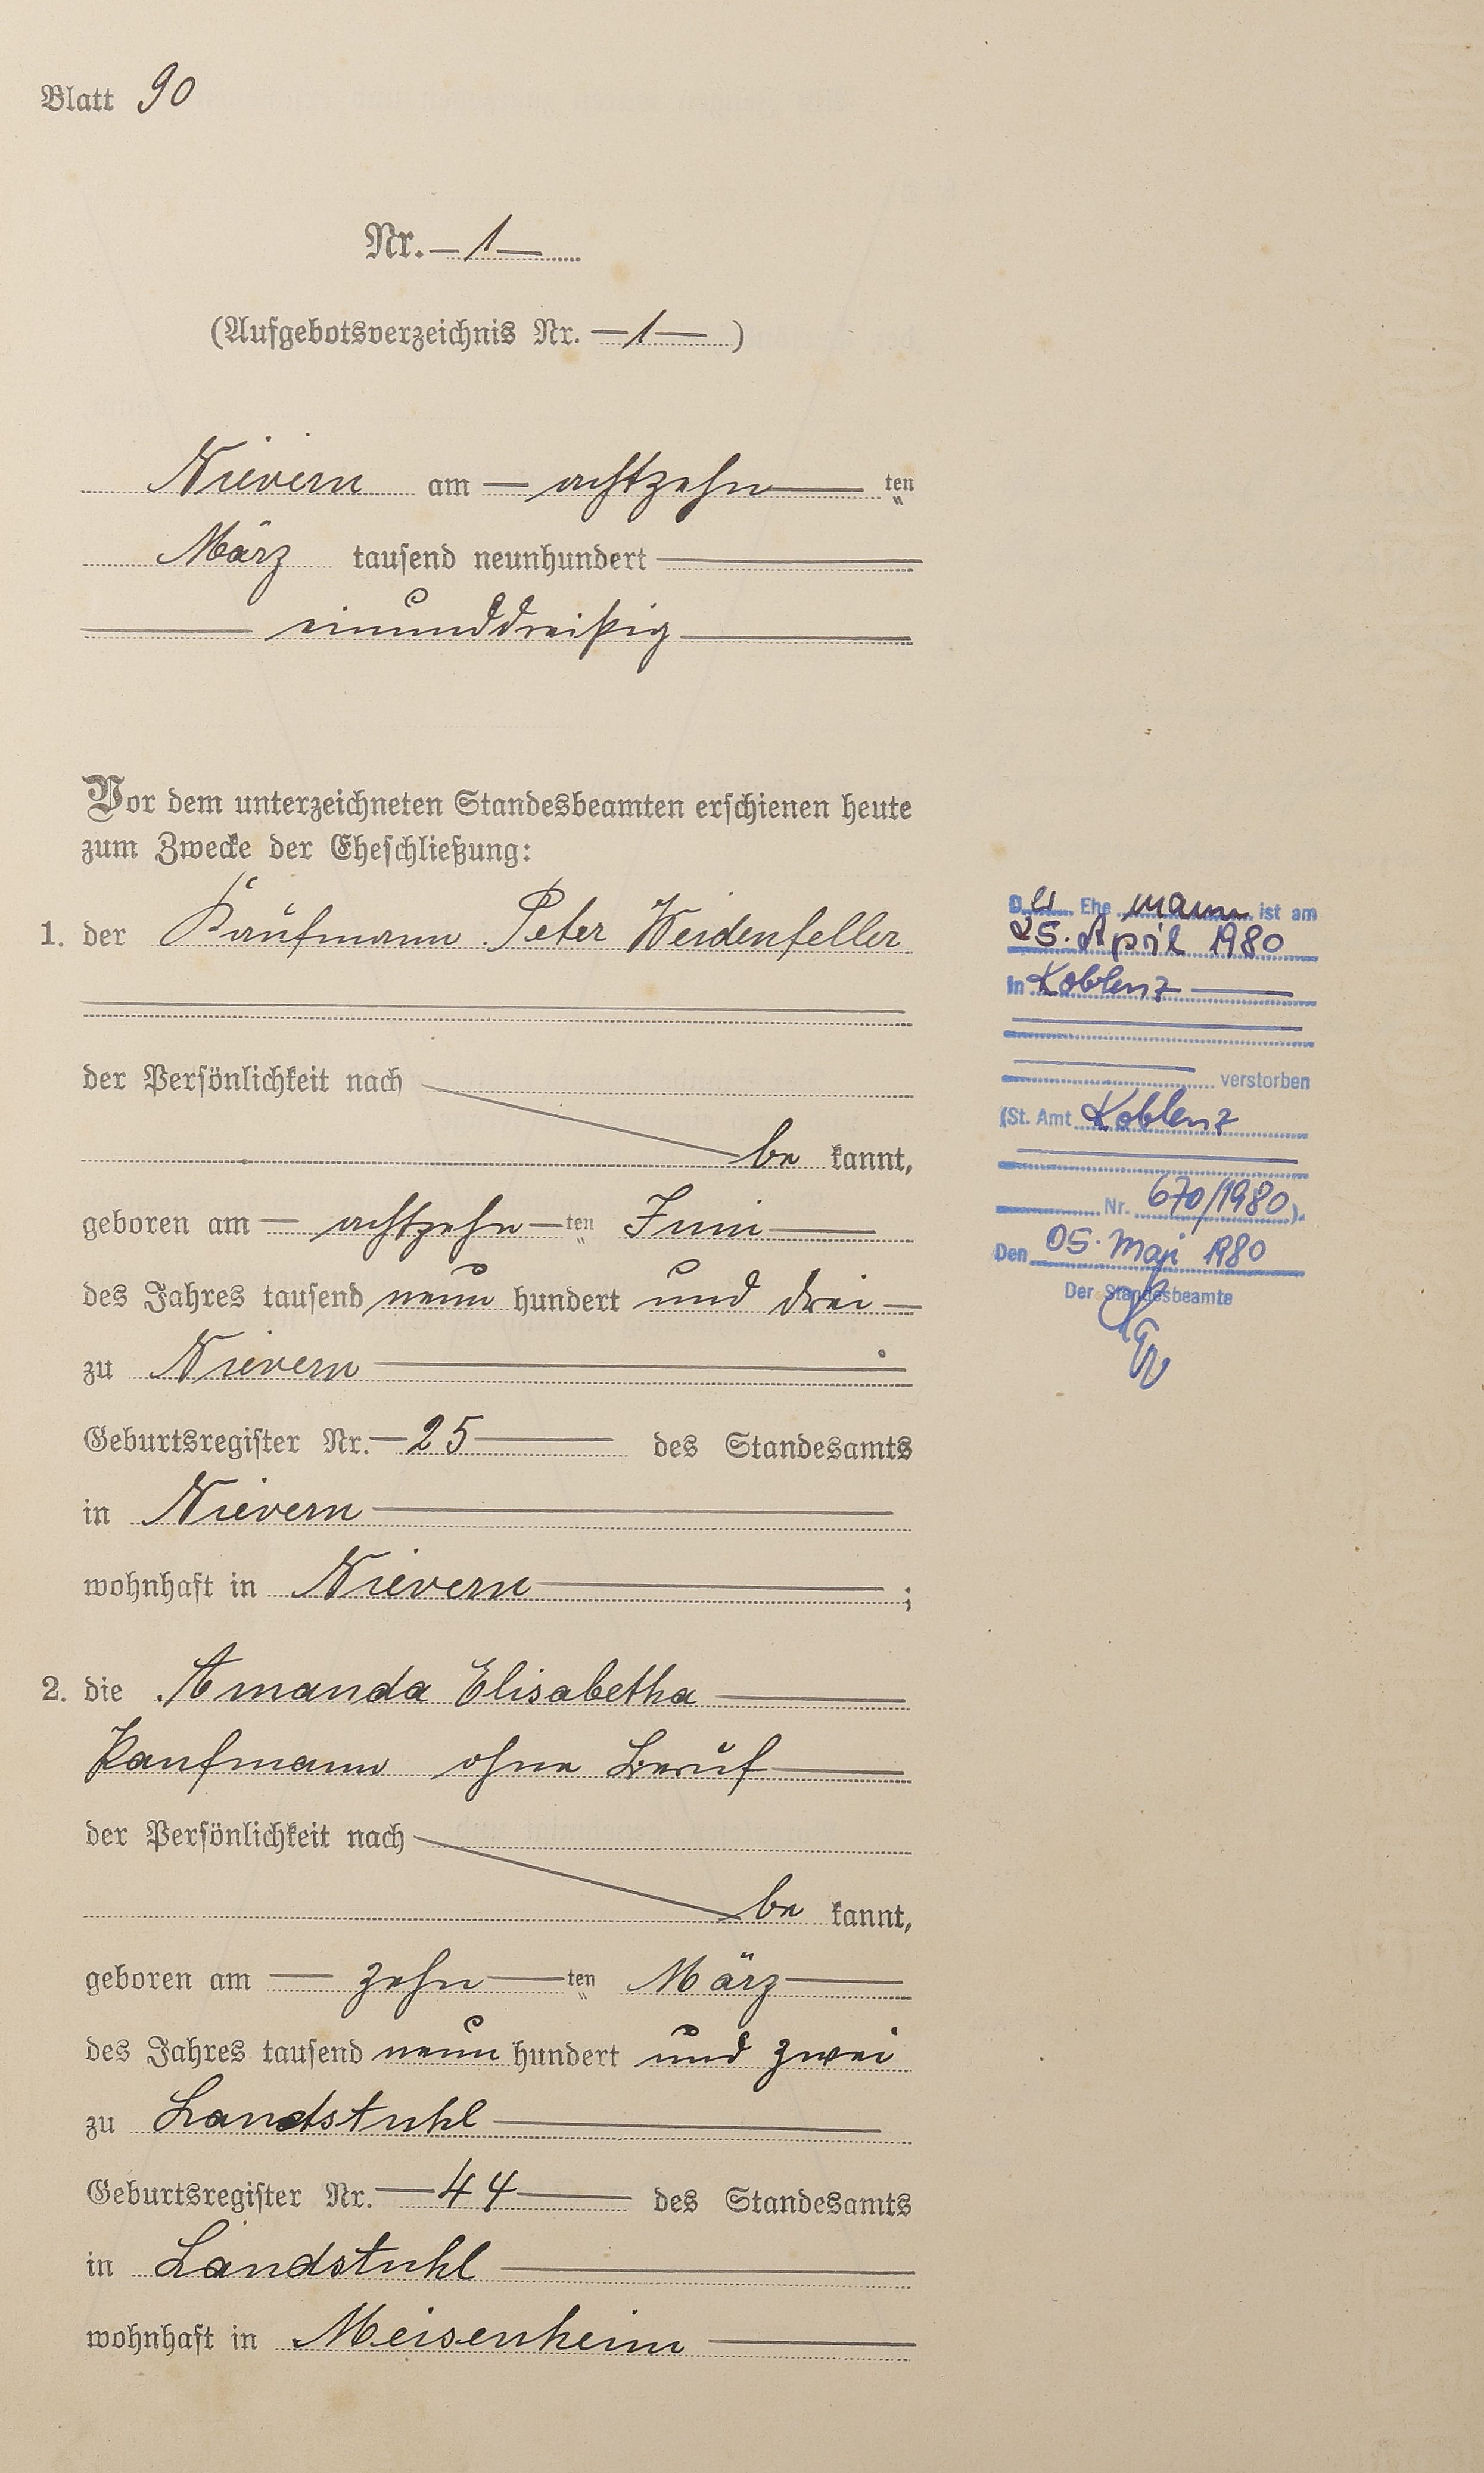 Blatt 90
Nr. 1
(Aufgebotsverzeichnis Nr. 1 )
Nievern am achtzehn ten
März tausend neunhundert
einunddreißig
Vor dem unterzeichneten Standesbeamten erschienen heute
zum Zwecke der Eheschließung:
1. der Kaufmann Peter Weidenfeller
der Persönlichkeit nach
be kannt,
geboren am achtzehn ten Juni
des Jahres tausend neun hundert und drei
zu Nievern
Geburtsregister Nr. 25 des Standesamts
in Nievern
wohnhaft in Nievern ;
2. die Amanda Elisabetha
Kaufmann ohne Beruf
der Persönlichkeit nach
be kannt,
geboren am zehn ten März
des Jahres tausend neun hundert und zwei
zu Landstuhl
Geburtsregister Nr. 44 des Standesamts
in Landstuhl
wohnhaft in Meisenheim
Der Ehe mann ist am
25. April 1980
in Koblenz
verstorben
(St. Amt Koblenz
Nr. 670/1980).
Den 05. Mai 1980
Der Standesbeamte